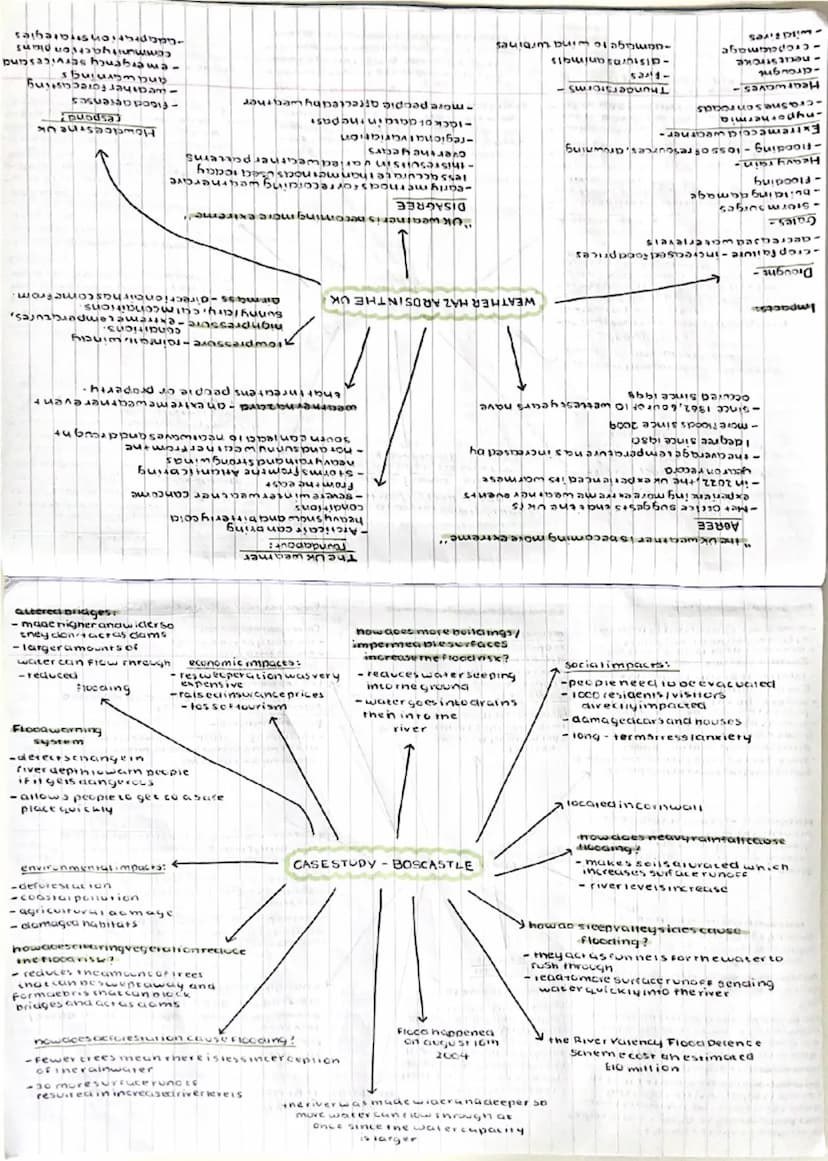 WEATHER HAZARDS IN THE UK
Impacts:
Drought -
- crop failure - increased food prices
- decreased water levels
Gales -
- storm surges
- building damage
- flooding
Heavy rain -
- flooding - loss of resources, drowning
Extreme cold weather -
- hypothermia
- crashes on roads
Heatwaves -
- drought
- heatstroke
- crop damage
- wildfires
Thunderstorms -
- fires
- disturbs animals
- damage to wind turbines
"UK weather is becoming more extreme"
DISAGREE
- early methods for recording weather are
less accurate than methods used today
- this results in varied weather patterns
over the years
- regional variation
- lack of data in the past
- more people affected by weather
How does the UK
respond?
- flood defenses
- weather forecasting
and warnings
- emergency services and
community action plans
- adaptation strategies
low pressure - rainfall, windy
conditions.
high pressure - extreme temperatures,
sunny/dry, calm conditions
air mass - direction air has come from.
weather hazard - an extreme weather event
that threatens people or property.
The UK weather
roundabout:
- Arctic air can bring
heavy snow and bitterly cold
conditions
- severe winter weather can come
from the east
- storms from the Atlantic bring
heavy rain and strong winds
- hot and sunny weather from the
south can lead to heatwaves and drought
"the UK weather is becoming more extreme"
AGREE
- Met Office suggests that the UK is
experiencing more extreme weather events
- in 2022, the UK experienced its warmest
year on record
- the average temperature has increased by
1 degree since 1980
- more floods since 2009
- since 1862, 6 out of 10 wettest years have
occured since 1998
CASE STUDY - BOSCASTLE
altered bridges:
- made higher and wider so
they don't act as dams
- larger amounts of
water can flow through
- reduced
flooding
economic impacts:
- rescue operation was very
expensive
- raised insurance prices
- loss of tourism
how does more buildings/
impermeable surfaces
increase the flood risk?
- reduces water seeping
into the ground
- water goes into drains
then into the
river
social impacts:
- people need to be evacuated
- 1000 residents/visitors
directly impacted
- damaged cars and houses
- long-term stress/anxiety
Flood warning
system
- detects change in
river depth to warn people
if it gets dangerous
- allows people to get to a safe
place quickly
located in cornwall
how does heavy rainfall cause
flooding?
- makes soil saturated which
increases surface runoff
- river levels increase
environmental impacts:
- deforestation
- coastal pollution
- agricultural damage
- damaged habitats
how do steep valley sides cause
flooding?
- they act as funnels for the water to
rush through
- lead to more surface runoff sending
water quickly into the river
how does clearing vegetation reduce
the flood risk?
- reduces the amount of trees
that can be swept away and
form debris that can block
bridges and act as dams
how does deforestation cause flooding?
- fewer trees mean there is less interception
of the rainwater
- so more surface runoff
resulted in increased river levels
Flood happened
on august 16th
2004
the River Valency Flood Defence
Scheme cost an estimated
£10 million
the river was made wider and deeper so
more water can flow through at
once since the water capacity
is larger